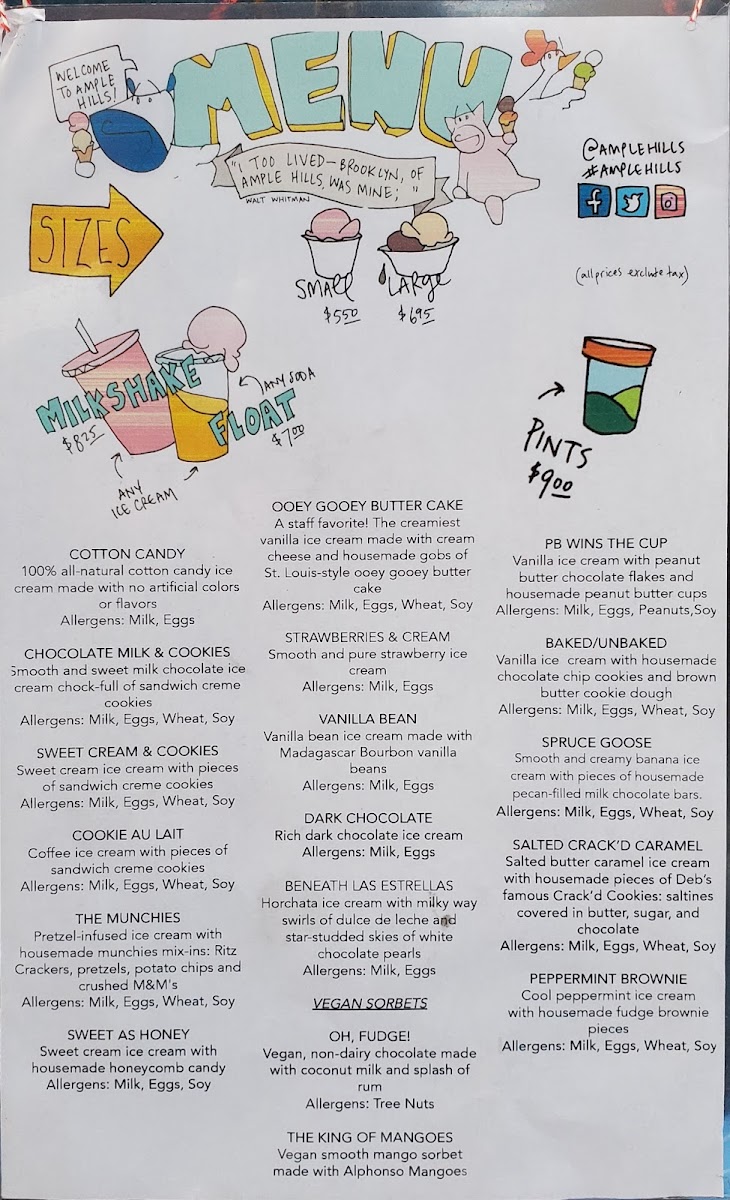 WELCOME
TO AMPLE
HILLS!
MENU
"I TOO LIVED—BROOKLYN, OF
AMPLE HILLS, WAS MINE; "
WALT WHITMAN
@AMPLEHILLS
#AMPLEHILLS
SIZES
SMALL
$5.50
LARGE
$6.95
(all prices exclude tax)
MILKSHAKE
$8.25
FLOAT
$7.00
ANY SODA
ANY
ICE CREAM
PINTS
$9.00
COTTON CANDY
100% all-natural cotton candy ice
cream made with no artificial colors
or flavors
Allergens: Milk, Eggs
CHOCOLATE MILK & COOKIES
Smooth and sweet milk chocolate ice
cream chock-full of sandwich creme
cookies
Allergens: Milk, Eggs, Wheat, Soy
SWEET CREAM & COOKIES
Sweet cream ice cream with pieces
of sandwich creme cookies
Allergens: Milk, Eggs, Wheat, Soy
COOKIE AU LAIT
Coffee ice cream with pieces of
sandwich creme cookies
Allergens: Milk, Eggs, Wheat, Soy
THE MUNCHIES
Pretzel-infused ice cream with
housemade munchies mix-ins: Ritz
Crackers, pretzels, potato chips and
crushed M&M's
Allergens: Milk, Eggs, Wheat, Soy
SWEET AS HONEY
Sweet cream ice cream with
housemade honeycomb candy
Allergens: Milk, Eggs, Soy
OOEY GOOEY BUTTER CAKE
A staff favorite! The creamiest
vanilla ice cream made with cream
cheese and housemade gobs of
St. Louis-style ooey gooey butter
cake
Allergens: Milk, Eggs, Wheat, Soy
STRAWBERRIES & CREAM
Smooth and pure strawberry ice
cream
Allergens: Milk, Eggs
VANILLA BEAN
Vanilla bean ice cream made with
Madagascar Bourbon vanilla
beans
Allergens: Milk, Eggs
DARK CHOCOLATE
Rich dark chocolate ice cream
Allergens: Milk, Eggs
BENEATH LAS ESTRELLAS
Horchata ice cream with milky way
swirls of dulce de leche and
star-studded skies of white
chocolate pearls
Allergens: Milk, Eggs
VEGAN SORBETS
OH, FUDGE!
Vegan, non-dairy chocolate made
with coconut milk and splash of
rum
Allergens: Tree Nuts
THE KING OF MANGOES
Vegan smooth mango sorbet
made with Alphonso Mangoes
PB WINS THE CUP
Vanilla ice cream with peanut
butter chocolate flakes and
housemade peanut butter cups
Allergens: Milk, Eggs, Peanuts,Soy
BAKED/UNBAKED
Vanilla ice cream with housemade
chocolate chip cookies and brown
butter cookie dough
Allergens: Milk, Eggs, Wheat, Soy
SPRUCE GOOSE
Smooth and creamy banana ice
cream with pieces of housemade
pecan-filled milk chocolate bars.
Allergens: Milk, Eggs, Wheat, Soy
SALTED CRACK'D CARAMEL
Salted butter caramel ice cream
with housemade pieces of Deb's
famous Crack'd Cookies: saltines
covered in butter, sugar, and
chocolate
Allergens: Milk, Eggs, Wheat, Soy
PEPPERMINT BROWNIE
Cool peppermint ice cream
with housemade fudge brownie
pieces
Allergens: Milk, Eggs, Wheat, Soy